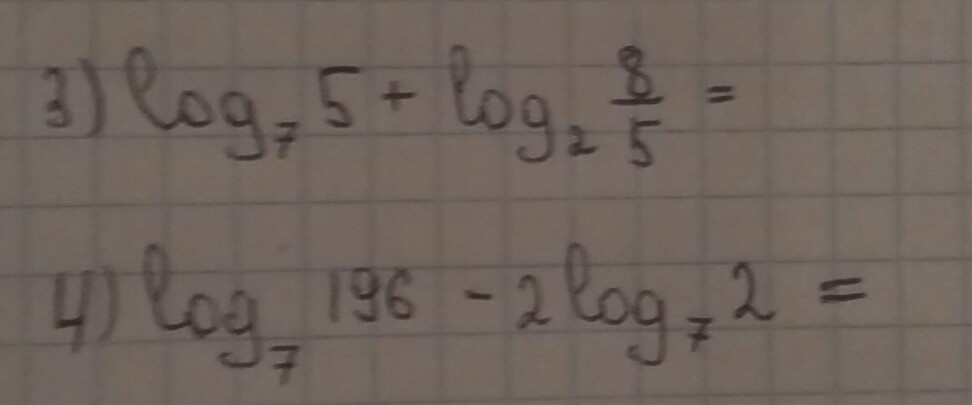 3) log₇ 5 + log₂ 8/5 =
4) log₇ 196 - 2 log₇ 2 =